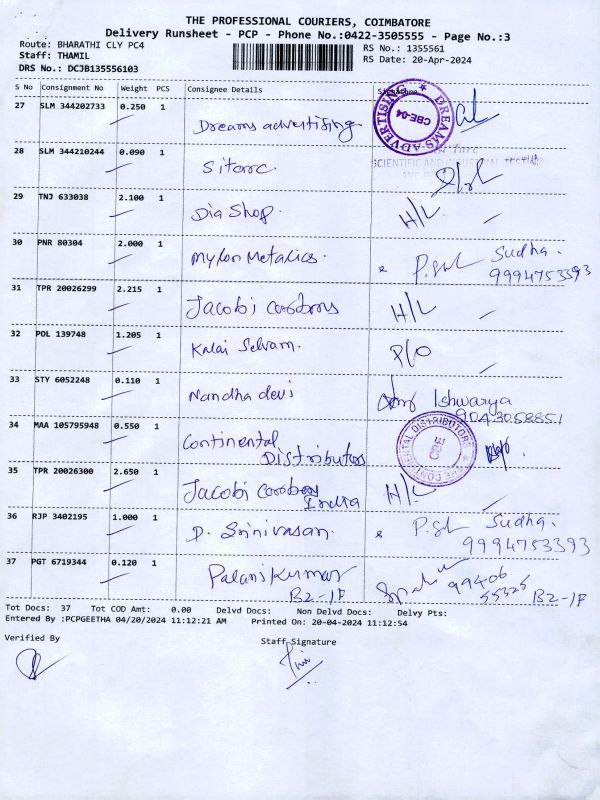 THE PROFESSIONAL COURIERS, COIMBATORE
Delivery Runsheet - PCP - Phone No.:0422-3505555 - Page No.:3
Route: BHARATHI CLY PC4
RS No.: 1355561
Staff: THAMIL
RS Date: 20-Apr-2024
DRS No.: DCJB135556103
S No Consignment No Weight PCS Consignee Details Signature
27 SLM 344202733 0.250 1 Dreams advertising DREAMS ADVERTISING CBE-04
28 SLM 344210244 0.090 1 Sitarc. SCIENTIFIC AND INDUSTRIAL
29 TNJ 633038 2.100 1 Dia Shop. H/L
30 PNR 80304 2.000 1 Mylon Metalics. Sudha.
9994753393
31 TPR 20026299 2.215 1 Jacobi carbons H/L
32 POL 139748 1.205 1 Kalai Selvam. P/O
33 STY 6052248 0.110 1 Nandha devi Ishwarya
9043058851
34 MAA 105795948 0.550 1 Continental
Distributors CONTINENTAL DISTRIBUTORS CBE
35 TPR 20026300 2.650 1 Jacobi carbons
India H/L
36 RJP 3402195 1.000 1 D. Srinivasan. Sudha.
9994753393
37 PGT 6719344 0.120 1 Palanikumar
B2-1F 99406
55325 B2-1F
Tot Docs: 37 Tot COD Amt: 0.00 Delvd Docs: Non Delvd Docs: Delvy Pts:
Entered By :PCPGEETHA 04/20/2024 11:12:21 AM Printed On: 20-04-2024 11:12:54
Verified By
Staff Signature